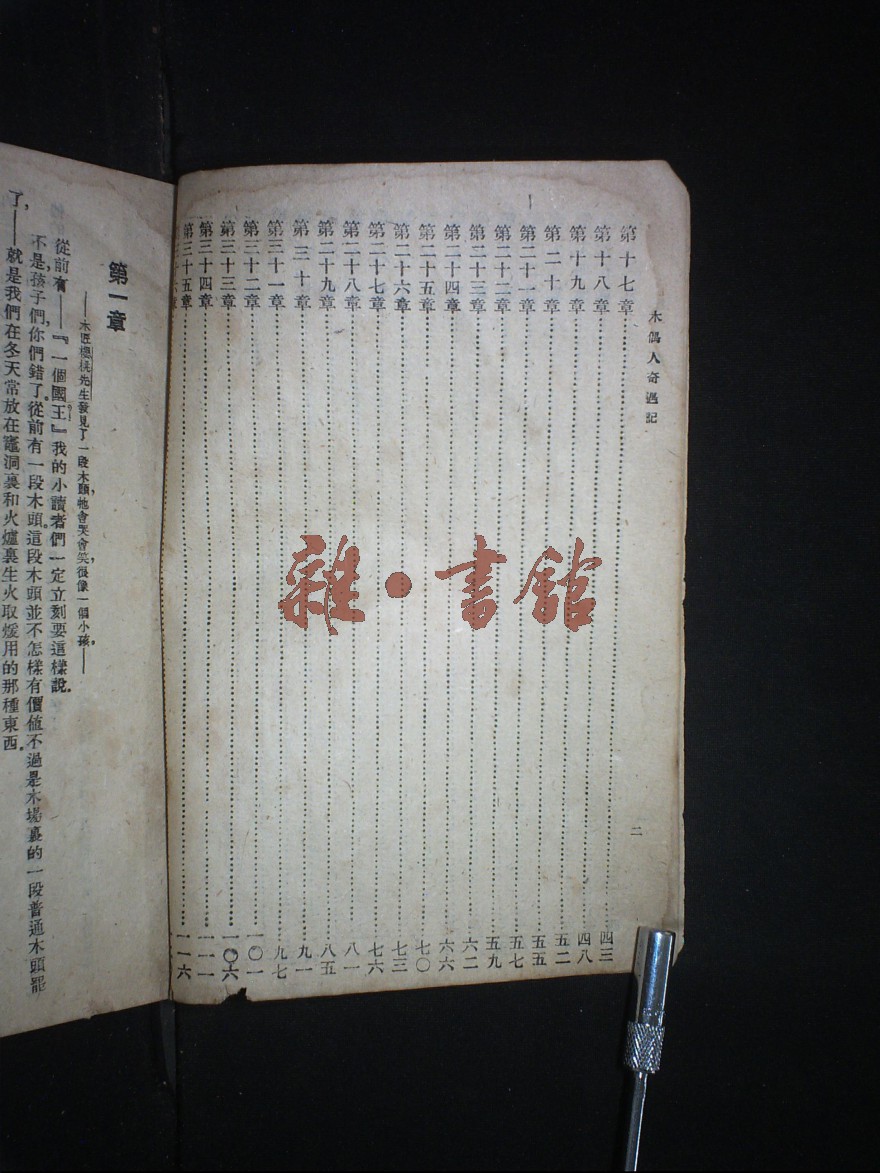 木偶人奇遇記
二
第十七章…………四三
第十八章…………四八
第十九章…………五二
第二十章…………五五
第二十一章…………五七
第二十二章…………五九
第二十三章…………六二
第二十四章…………六六
第二十五章…………七〇
第二十六章…………七三
第二十七章…………七六
第二十八章…………八一
第二十九章…………八五
第三十章…………九一
第三十一章…………九七
第三十二章…………一〇一
第三十三章…………一〇六
第三十四章…………一一一
第三十五章…………一一六
第一章
——木匠櫻桃先生發見了一段木頭，牠會哭會笑，很像一個小孩。——
從前有——『一個國王』我的小讀者們一定立刻要這樣說.
不是，孩子們，你們錯了.從前有一段木頭.這段木頭並不怎樣有價值不過是木場裏的一段普通木頭罷
了，——就是我們在冬天常放在竈洞裏和火爐裏生火取煖用的那種東西.
雜·書館